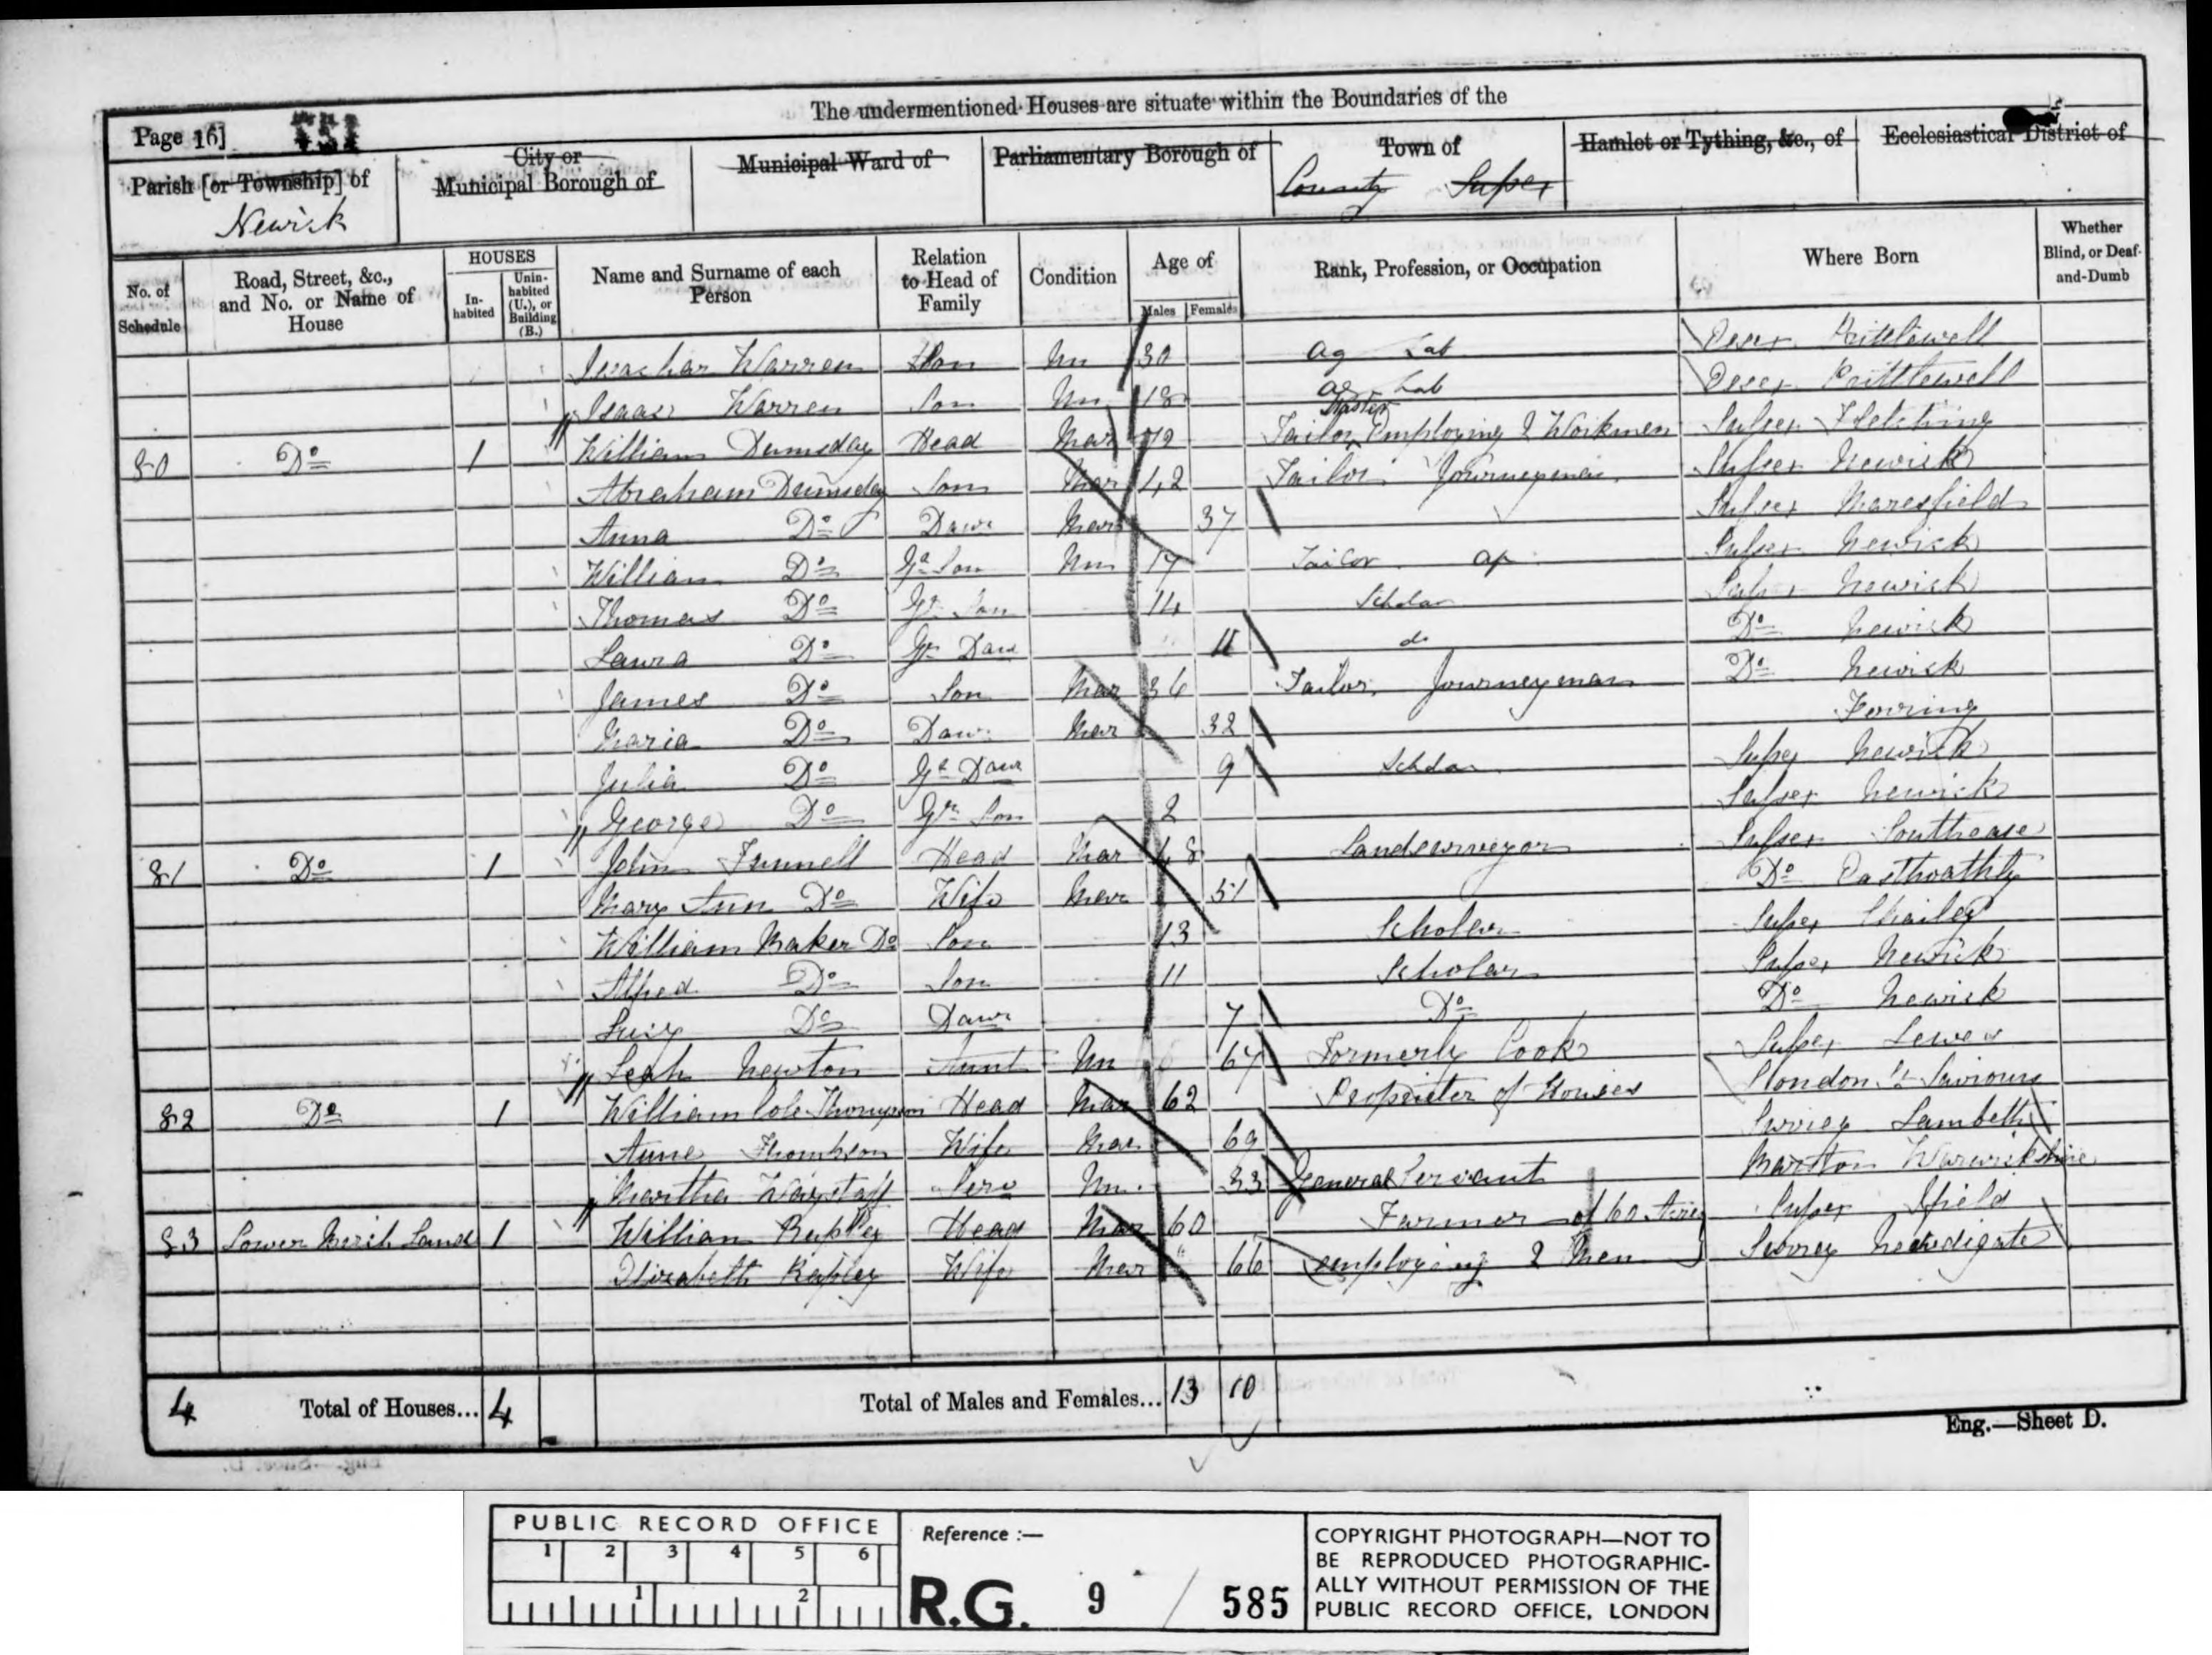 The undermentioned Houses are situate within the Boundaries of the
Page 16]
Parish [or Township] of
Newick
City or
Municipal Borough of
Municipal Ward of
Parliamentary Borough of
Town of
County Sussex
Hamlet or Tything, &c., of
Ecclesiastical District of
No. of
Schedule
Road, Street, &c.,
and No. or Name of
House
HOUSES
In-
habited
Unin-
habited
(U.), or
Building
(B.)
Name and Surname of each
Person
Relation
to Head of
Family
Condition
Age of
Males Females
Rank, Profession, or Occupation
Where Born
Whether
Blind, or Deaf-
and-Dumb
Warren Son Un 30 Ag Lab Essex Prittlewell
Isaac Warren Son Un 18 Ag Lab Essex Prittlewell
80 Do 1 William Dumsday Head Mar 72 Tailor Master Employing 2 Workmen Sussex Fletching
Abraham Dumsday Son Mar 42 Tailor Journeyman Sussex Newick
Anna Do Daur Mar 37 Sussex Maresfield
William Do Gd Son Un 17 Tailor ap Sussex Newick
Thomas Do Gr Son 14 Scholar Sussex Newick
Laura Do Gr Daur 11 do Do Newick
James Do Son Mar 36 Tailor Journeyman Do Newick
Maria Do Daur Mar 32 Ferring
Julia Do Gd Daur 9 Scholar Sussex Newick
George Do Gr Son 2 Sussex Newick
81 Do 1 John Funnell Head Mar 48 Landsurveyor Sussex Southease
Mary Ann Do Wife Mar 51 Do Easthoathly
William Baker Do Son 13 Scholar Sussex Chailey
Alfred Do Son 11 Scholar Sussex Newick
Lucy Do Daur 7 Do Do Newick
Leah Newton Aunt Un 67 Formerly Cook Sussex Lewes
82 Do 1 William Cole Thompson Head Mar 62 Proprietor of Houses London St Saviours
Anne Thompson Wife Mar 69 Surrey Lambeth
Martha Wagstaff Serv Un 33 General Servant Marston Warwickshire
83 Lower Land 1 William Head Mar 60 Farmer of 60 Acres Sussex Ifield
Elizabeth Wife Mar 66 employing 2 Men Surrey Newdigate
4 Total of Houses... 4
Total of Males and Females... 13 10
Eng.—Sheet D.
PUBLIC RECORD OFFICE
1 2 3 4 5 6
1 2
Reference :—
R.G. 9 / 585
COPYRIGHT PHOTOGRAPH—NOT TO
BE REPRODUCED PHOTOGRAPHIC-
ALLY WITHOUT PERMISSION OF THE
PUBLIC RECORD OFFICE, LONDON